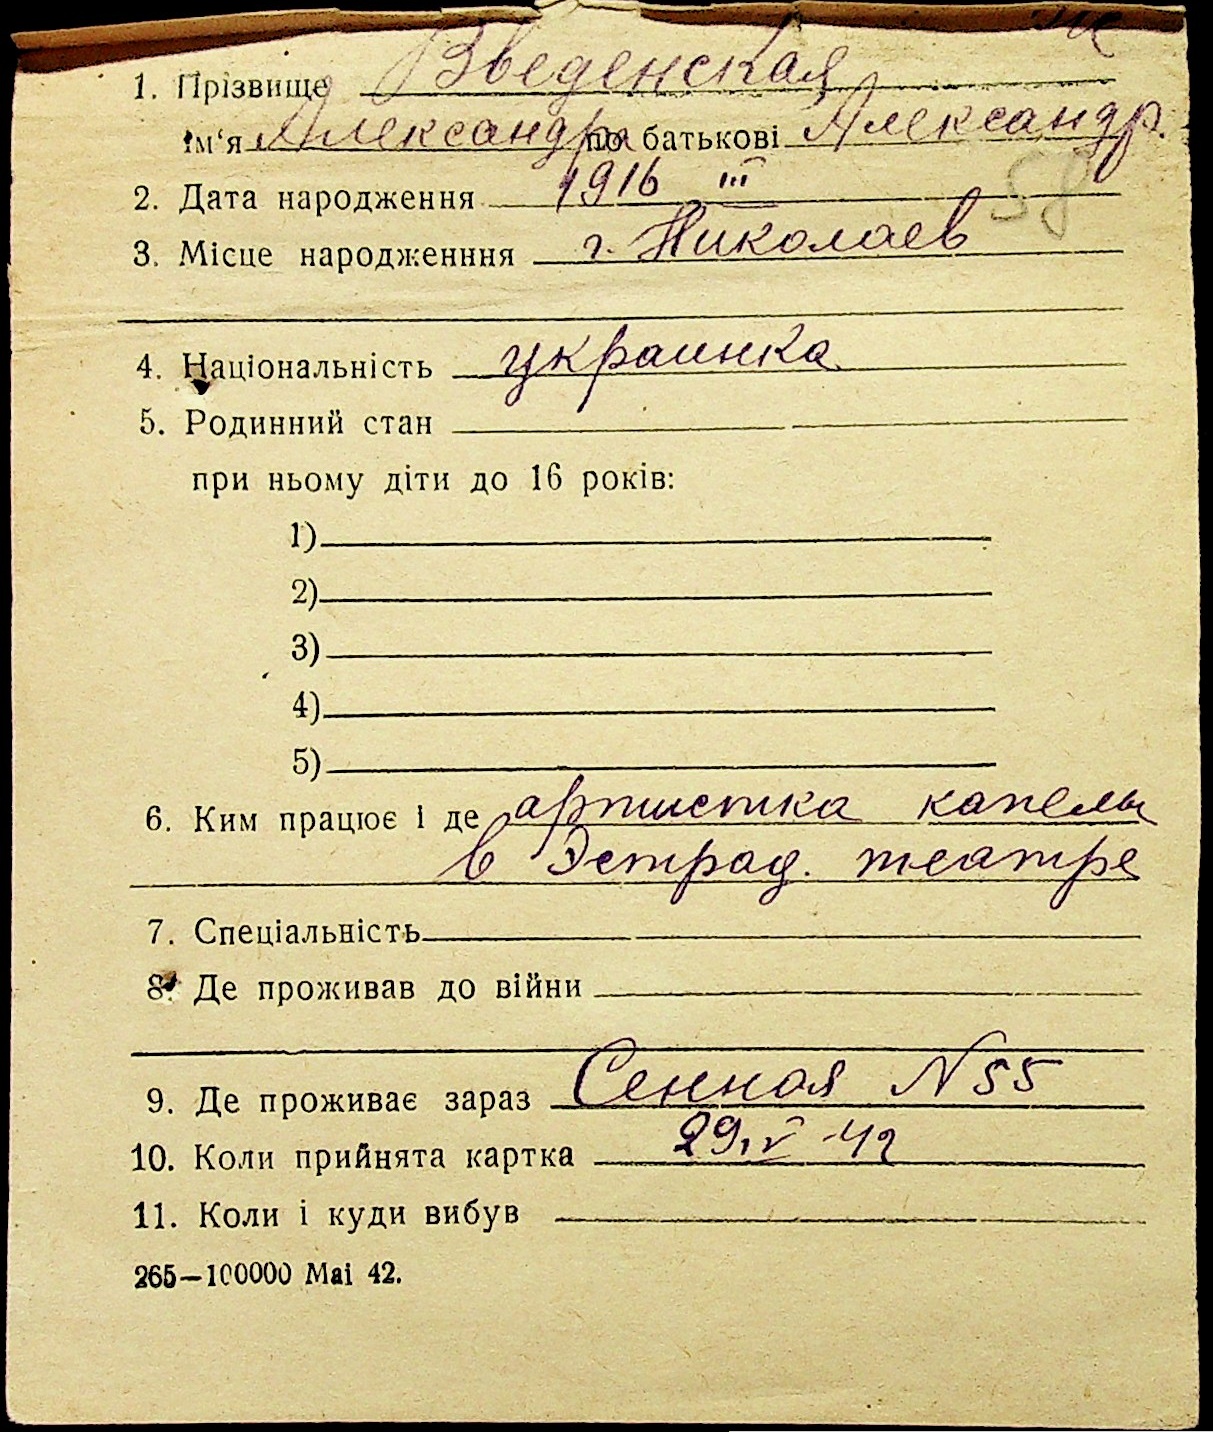 1. Прізвище Введенская
ім‘я Александра по батькові Александр.
2. Дата народження 1916 III
58
3. Місце народженння г. Николаев
4. Національність украинка
5. Родинний стан
при ньому діти до 16 років:
1)
2)
3)
4)
5)
6. Ким працює і де артистка капелы
в Эстрад. театре
7. Спеціальність
8. Де проживав до війни
9. Де проживає зараз Сенная N 55
10. Коли прийнята картка 29.V-42
11. Коли і куди вибув
265—100000 Mai 42.